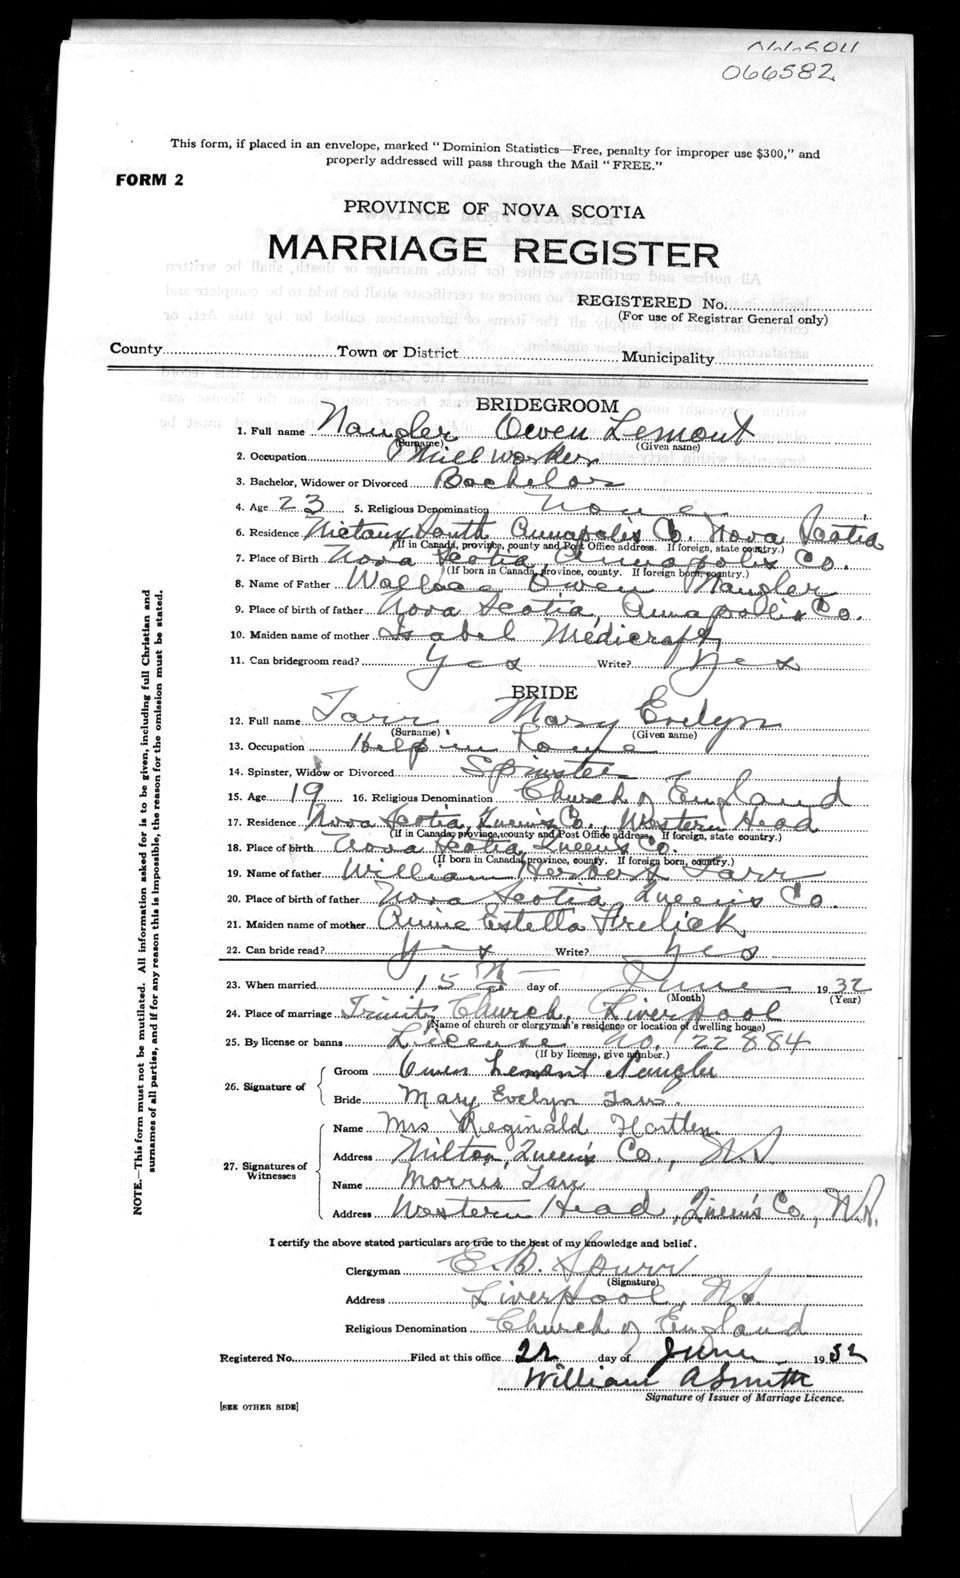 066582
This form, if placed in an envelope, marked "Dominion Statistics—Free, penalty for improper use $300," and
properly addressed will pass through the Mail "FREE."
FORM 2
PROVINCE OF NOVA SCOTIA
MARRIAGE REGISTER
REGISTERED No.
(For use of Registrar General only)
County Town or District Municipality
BRIDEGROOM
1. Full name Naugler Owen Lemont
(Surname) (Given name)
2. Occupation Mill worker
3. Bachelor, Widower or Divorced Bachelor
4. Age 23 5. Religious Denomination None
6. Residence Nictaux South Annapolis Co. Nova Scotia
(If in Canada, province, county and Post Office address. If foreign, state country.)
7. Place of Birth Nova Scotia, Annapolis Co.
(If born in Canada, province, county. If foreign born, country.)
8. Name of Father Wallace Owen Naugler
9. Place of birth of father Nova Scotia, Annapolis Co.
10. Maiden name of mother Isabel Medicraft
11. Can bridegroom read? Yes Write? Yes
BRIDE
12. Full name Tarr Mary Evelyn
(Surname) (Given name)
13. Occupation Help in Home
14. Spinster, Widow or Divorced Spinster
15. Age 19 16. Religious Denomination Church of England
17. Residence Nova Scotia, Queen's Co., Western Head
(If in Canada, province, county and Post Office address. If foreign, state country.)
18. Place of birth Nova Scotia, Queen's Co.
(If born in Canada, province, county. If foreign born, country.)
19. Name of father William Herbert Tarr
20. Place of birth of father Nova Scotia, Queen's Co.
21. Maiden name of mother Annie Estella Frelick
22. Can bride read? Yes Write? Yes
23. When married 15th day of June 1932
(Month) (Year)
24. Place of marriage Trinity Church, Liverpool
(Name of church or clergyman's residence or location of dwelling house)
25. By license or banns License No. 122884
(If by license, give number.)
26. Signature of Groom Owen Lemont Naugler
Bride Mary Evelyn Tarr
27. Signatures of Witnesses Name Mrs Reginald Hartlen
Address Milton, Queen's Co., N.S.
Name Morris Tarr
Address Western Head, Queen's Co., N.S.
I certify the above stated particulars are true to the best of my knowledge and belief.
Clergyman E. B. Spurr
(Signature)
Address Liverpool, N.S.
Religious Denomination Church of England
Registered No. Filed at this office 22 day of June 1932
William A Smith
Signature of Issuer of Marriage Licence.
[SEE OTHER SIDE]
NOTE.—This form must not be mutilated. All information asked for is to be given, including full Christian and
surnames of all parties, and if for any reason this is impossible, the reason for the omission must be stated.